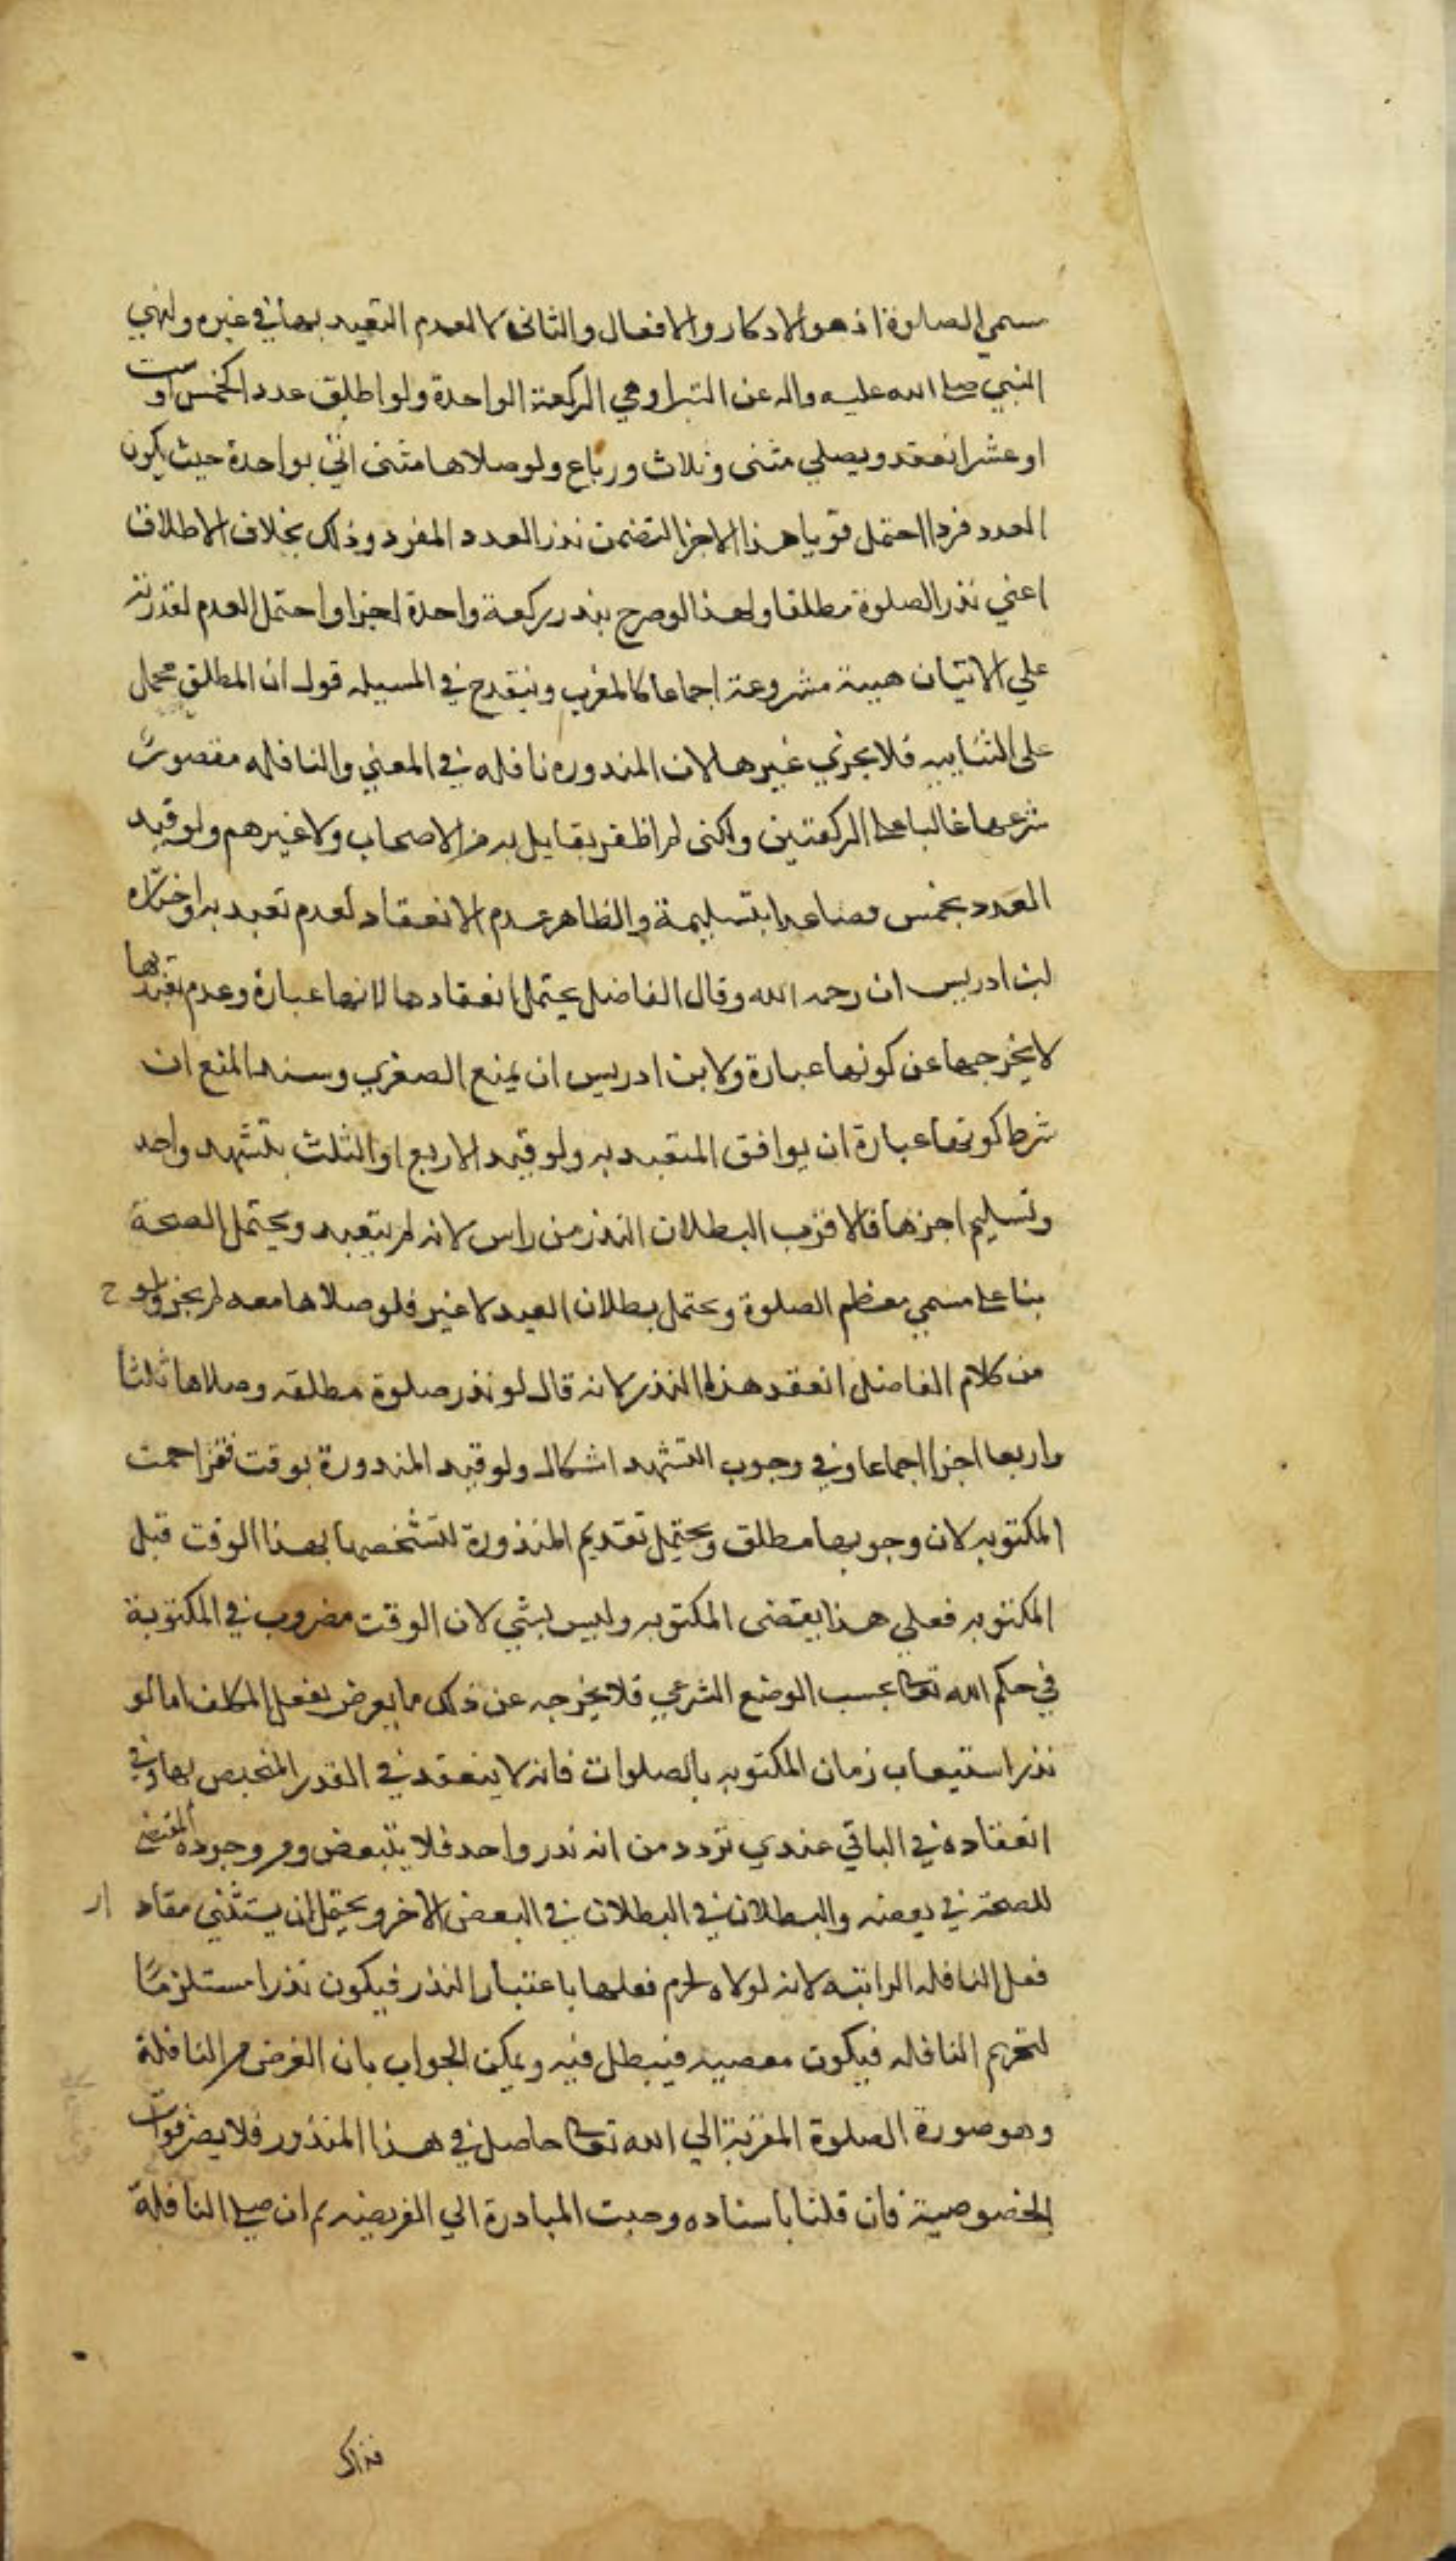 مسمي الصلوة اذ هو الاذكار والافعال والثاني لا لعدم التعبد بها في غيره ولنهي
النبي صلى الله عليه واله عن البترا وهي الركعة الواحدة ولو اطلق عدد الخمس او ست
او عشر انعقد ويصلي مثنى وثلاث ورباع ولو صلاها مثنى اتي بواحدة حيث يكون
العدد فردا احتمل قويا هذا الاجزا لتضمن نذر العدد المفرد وذلك بخلاف الاطلاق
اعني نذر الصلوة مطلقا ولهذا لو صرح بنذر ركعة واحدة اجزا واحتمل العدم لقدرته
علي الاتيان هيية مشروعة اجماعا كالمغرب وينقدح في المسيله قول ان المطلق محمل
على الثنايية فلا يجزي غيرها لان المنذوره نافله في المعني والنافله مقصور
شرعها غالبا على الركعتين ولكنى لم اظفر بقايل به من الاصحاب ولا غيرهم ولو قيد
العدد بخمس فصاعدا بتسليمة والظاهر عدم الانعقاد لعدم تعبد به واختاره
ابن ادريس ان رحمه الله وقال الفاضل يحتمل انعقادها لانها عبارة وعدم تعبدها
لا يخرجها عن كونها عبارة ولابن ادريس ان يمنع الصغري وسند المنع ان
شرط كونها عبارة ان يوافق المتعبد به ولو قيد الاربع او الثلث بتشهد واحد
وتسليم اجزها فالاقرب البطلان النذر من راس لانه لم يتعبد ويحتمل الصحة
بنا على مسمي معظم الصلوة ويحتمل بطلان القيد لا غير فلو صلاها معه لم يجز ولوح
من كلام الفاضل انعقد هذا النذر لانه قال لو نذر صلوة مطلقه وصلاها ثلثا
واربعا اجزا اجماعا وفي وجوب التشهد اشكال ولو قيد المنذورة بوقت فتزاحمت
المكتوبه لان وجوبها مطلق ويحتمل تقديم المنذورة لتشخصها بهذا الوقت قبل
المكتوبه فعلي هذا يقضى المكتوبه وليس بشي لان الوقت مضروب في المكتوبة
في حكم الله تعالى بحسب الوضع الشرعي فلا يخرجه عن ذلك ما يعرض بفعل المكلف اما لو
نذر استيعاب زمان المكتوبه بالصلوات فانه لا ينعقد في القدر المختص بها وفي
انعقاده في الباقي عندي تردد من انه نذر واحد فلا يتبعض ومن وجود المقتضي
للصحة في بعضه والبطلان في البطلان في البعض الاخر ويحتمل ان يستثني مقدار
فعل النافله الراتبه لانه لولاه لحرم فعلها باعتبار النذر فيكون نذرا مستلزما
لتحريم النافله فيكون معصيه فيبطل فيه ويمكن الجواب بان الغرض من النافلة
وهو صورة الصلوة المقربة الي الله تعالى حاصل في هذا المنذور فلا يضر فوات
الخصوصية فان قلنا باستاده وجبت المبادرة الي الفريضه ثم ان صلى النافلة
فذاك